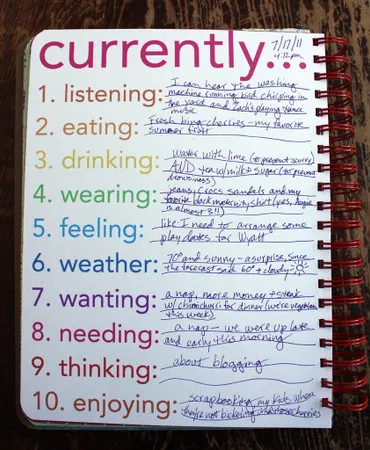 currently...
7/17/11
4:12pm
1. listening: I can hear the washing
machine running, bird chirping in
the yard and Zach's playing dance
music
2. eating: Fresh bing cherries - my favorite
summer fruit
3. drinking: Water with lime (to prevent scurvy)
AND tea w/milk + sugar (to prevent
drowsiness)
4. wearing: jeans, crocs sandals and my
favorite black maternity shirt (yes,
is almost 3!!)
5. feeling: like I need to arrange some
play dates for Wyatt
6. weather: 70° and sunny - a surprise, since
the forecast said 60° + cloudy
7. wanting: a nap, more money + steak
w/ chimichurri for dinner (we're vegetarian
this week)
8. needing: a nap - we were up late
and early this morning
9. thinking: about blogging
10. enjoying: scrapbooking, my kids, when
they're not bickering, cherries